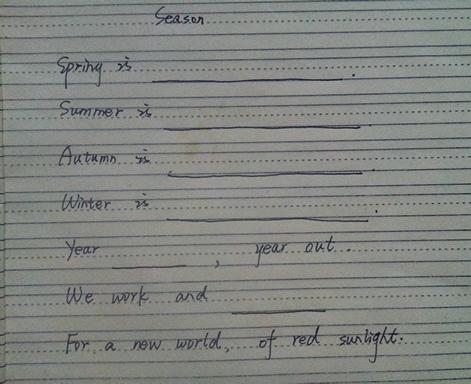 Season
Spring is __________.
Summer is __________.
Autumn is __________.
Winter is __________.
Year ______, year out.
We work and ______
For a new world, of red sunlight.